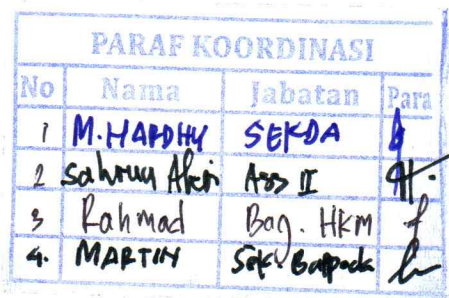 PARAF KOORDINASI
No Nama Jabatan Para
1 M. HARDHY SEKDA
2 Sahrun Ass II
3 Rahmad Bag. HKM
4. MARTIN Sek